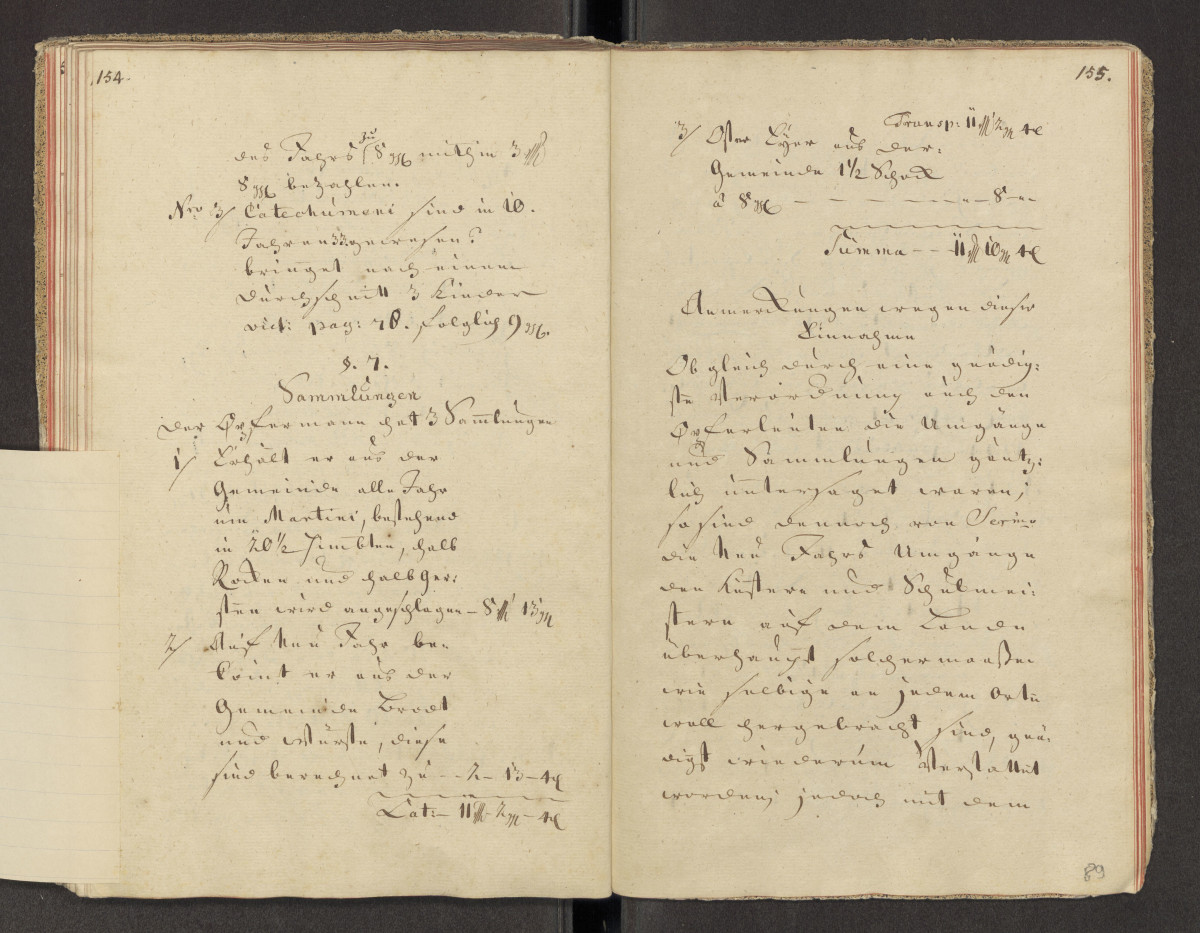 154.
des Jahrs zu 8 ggl mithin 3 rthl
8 ggl bezahlen.
Nro 3/ Catechumeni sind in 10.
Jahren 33 gewesen?
bringet nach einem
Durchschnitt 3 Kinder
vid: pag: 78. folglich 9 ggl.
§. 7.
Sammlungen
Der Opfermann hat 3 Sammlungen
1/ Erhält er aus der
Gemeinde alle Jahr
um Martini, bestehend
in 20 1/2 Himbten, halb
Rocken und halb Ger:
sten wird angeschlagen – 8 rthl 13 gl
2/ Auf Neu Jahr be=
komt er aus der
Gemeinde Brodt
und Würste, diese
sind berechnet zu – 2 – 13 – 4
Lat: – 11 rthl – 7 gl – 4
155.
Transp: 11 rthl 7 gl 4
3/ Oster Eyer aus der:
Gemeinde 1 1/2 Schock
a 8 ggl – – – – – – 8 –
Summa – – 11 rthl 10 gl 4
Anmerckungen wegen dieser
Einnahme
Ob gleich durch eine gnädig:
ste Verordnung auch den
Opferleuten die Umgänge
und Sammlungen gäntz:
lich untersaget waren;
so sind dennoch von
die Neu Jahrs Umgänge
den Küstern und Schulmei:
stern auf dem Lande
überhaupt solchermaaßen
wie selbige an jedem Orte
woll hergebracht sind, gnä:
digst wiederum Verstattet
worden; jedoch mit dem
89